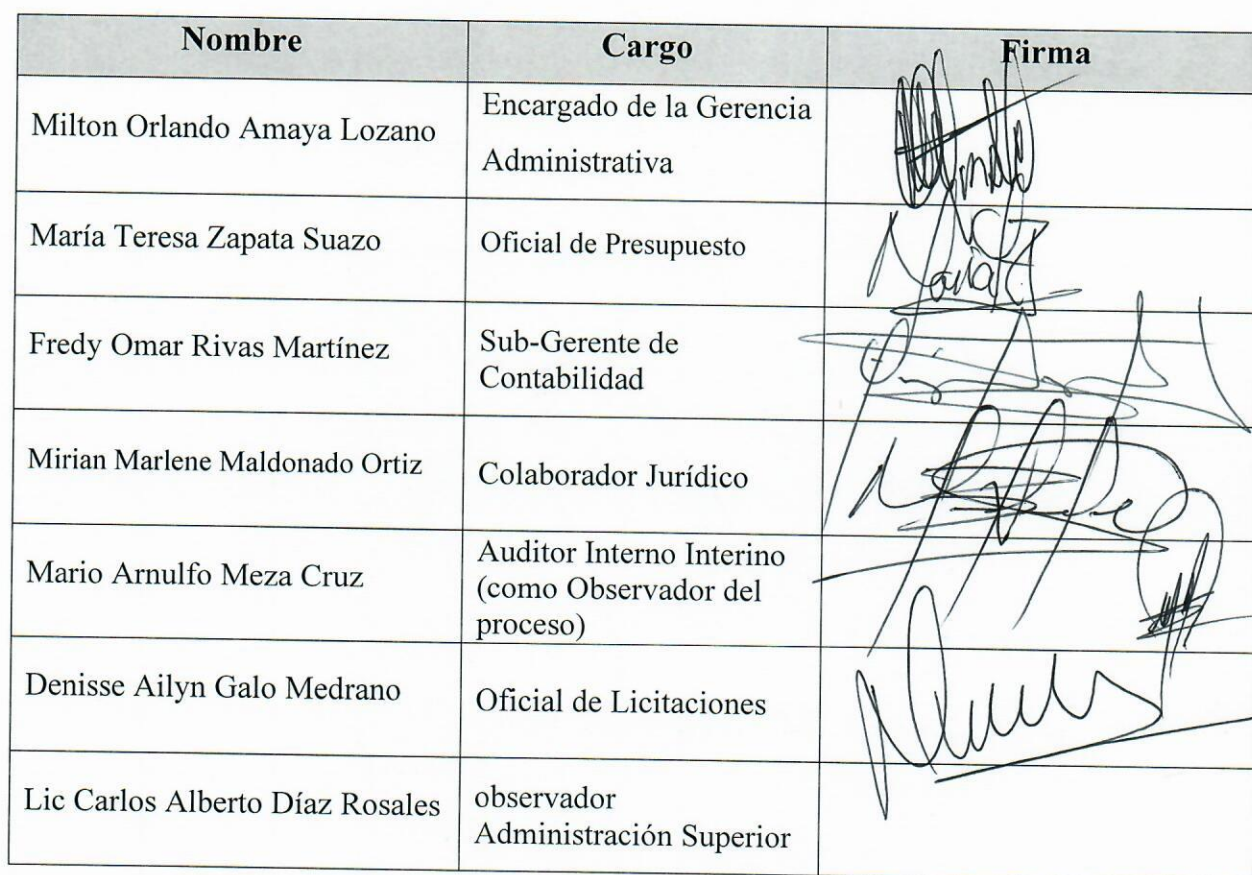 Nombre Cargo Firma
Milton Orlando Amaya Lozano
Encargado de la Gerencia
Administrativa
María Teresa Zapata Suazo
Oficial de Presupuesto
Fredy Omar Rivas Martínez
Sub-Gerente de
Contabilidad
Mirian Marlene Maldonado Ortiz
Colaborador Jurídico
Mario Arnulfo Meza Cruz
Auditor Interno Interino
(como Observador del
proceso)
Denisse Ailyn Galo Medrano
Oficial de Licitaciones
Lic Carlos Alberto Díaz Rosales
observador
Administración Superior